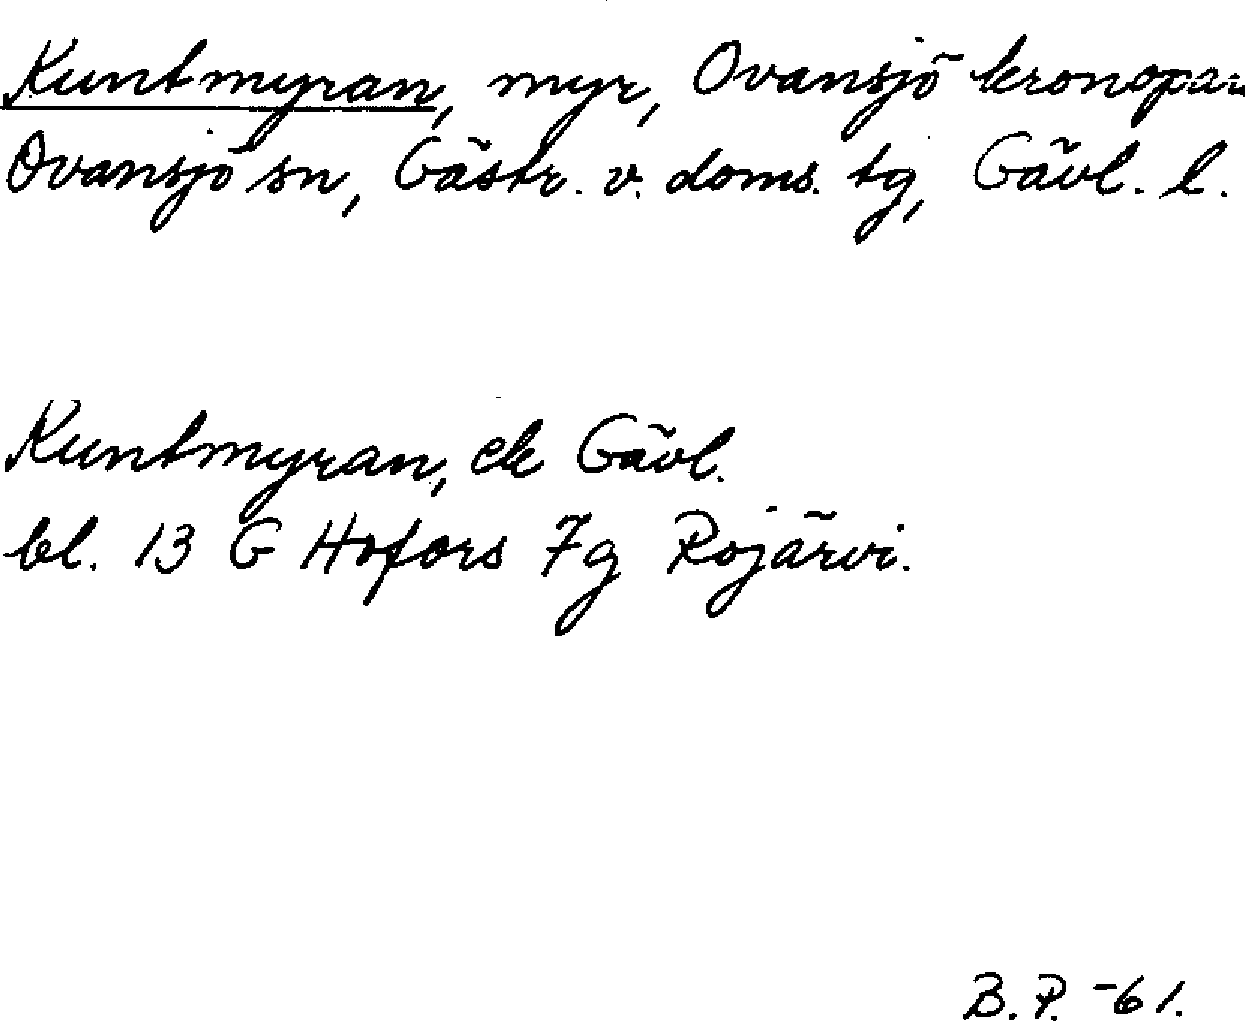 Kuntmyran, myr, Ovansjö kronopar
Ovansjö sn, Gästr. v. doms. tg, Gävl. l.
Kuntmyran, ek Gävl.
bl. 13 G Hofors 7g Rojärvi.
B.P. -61.